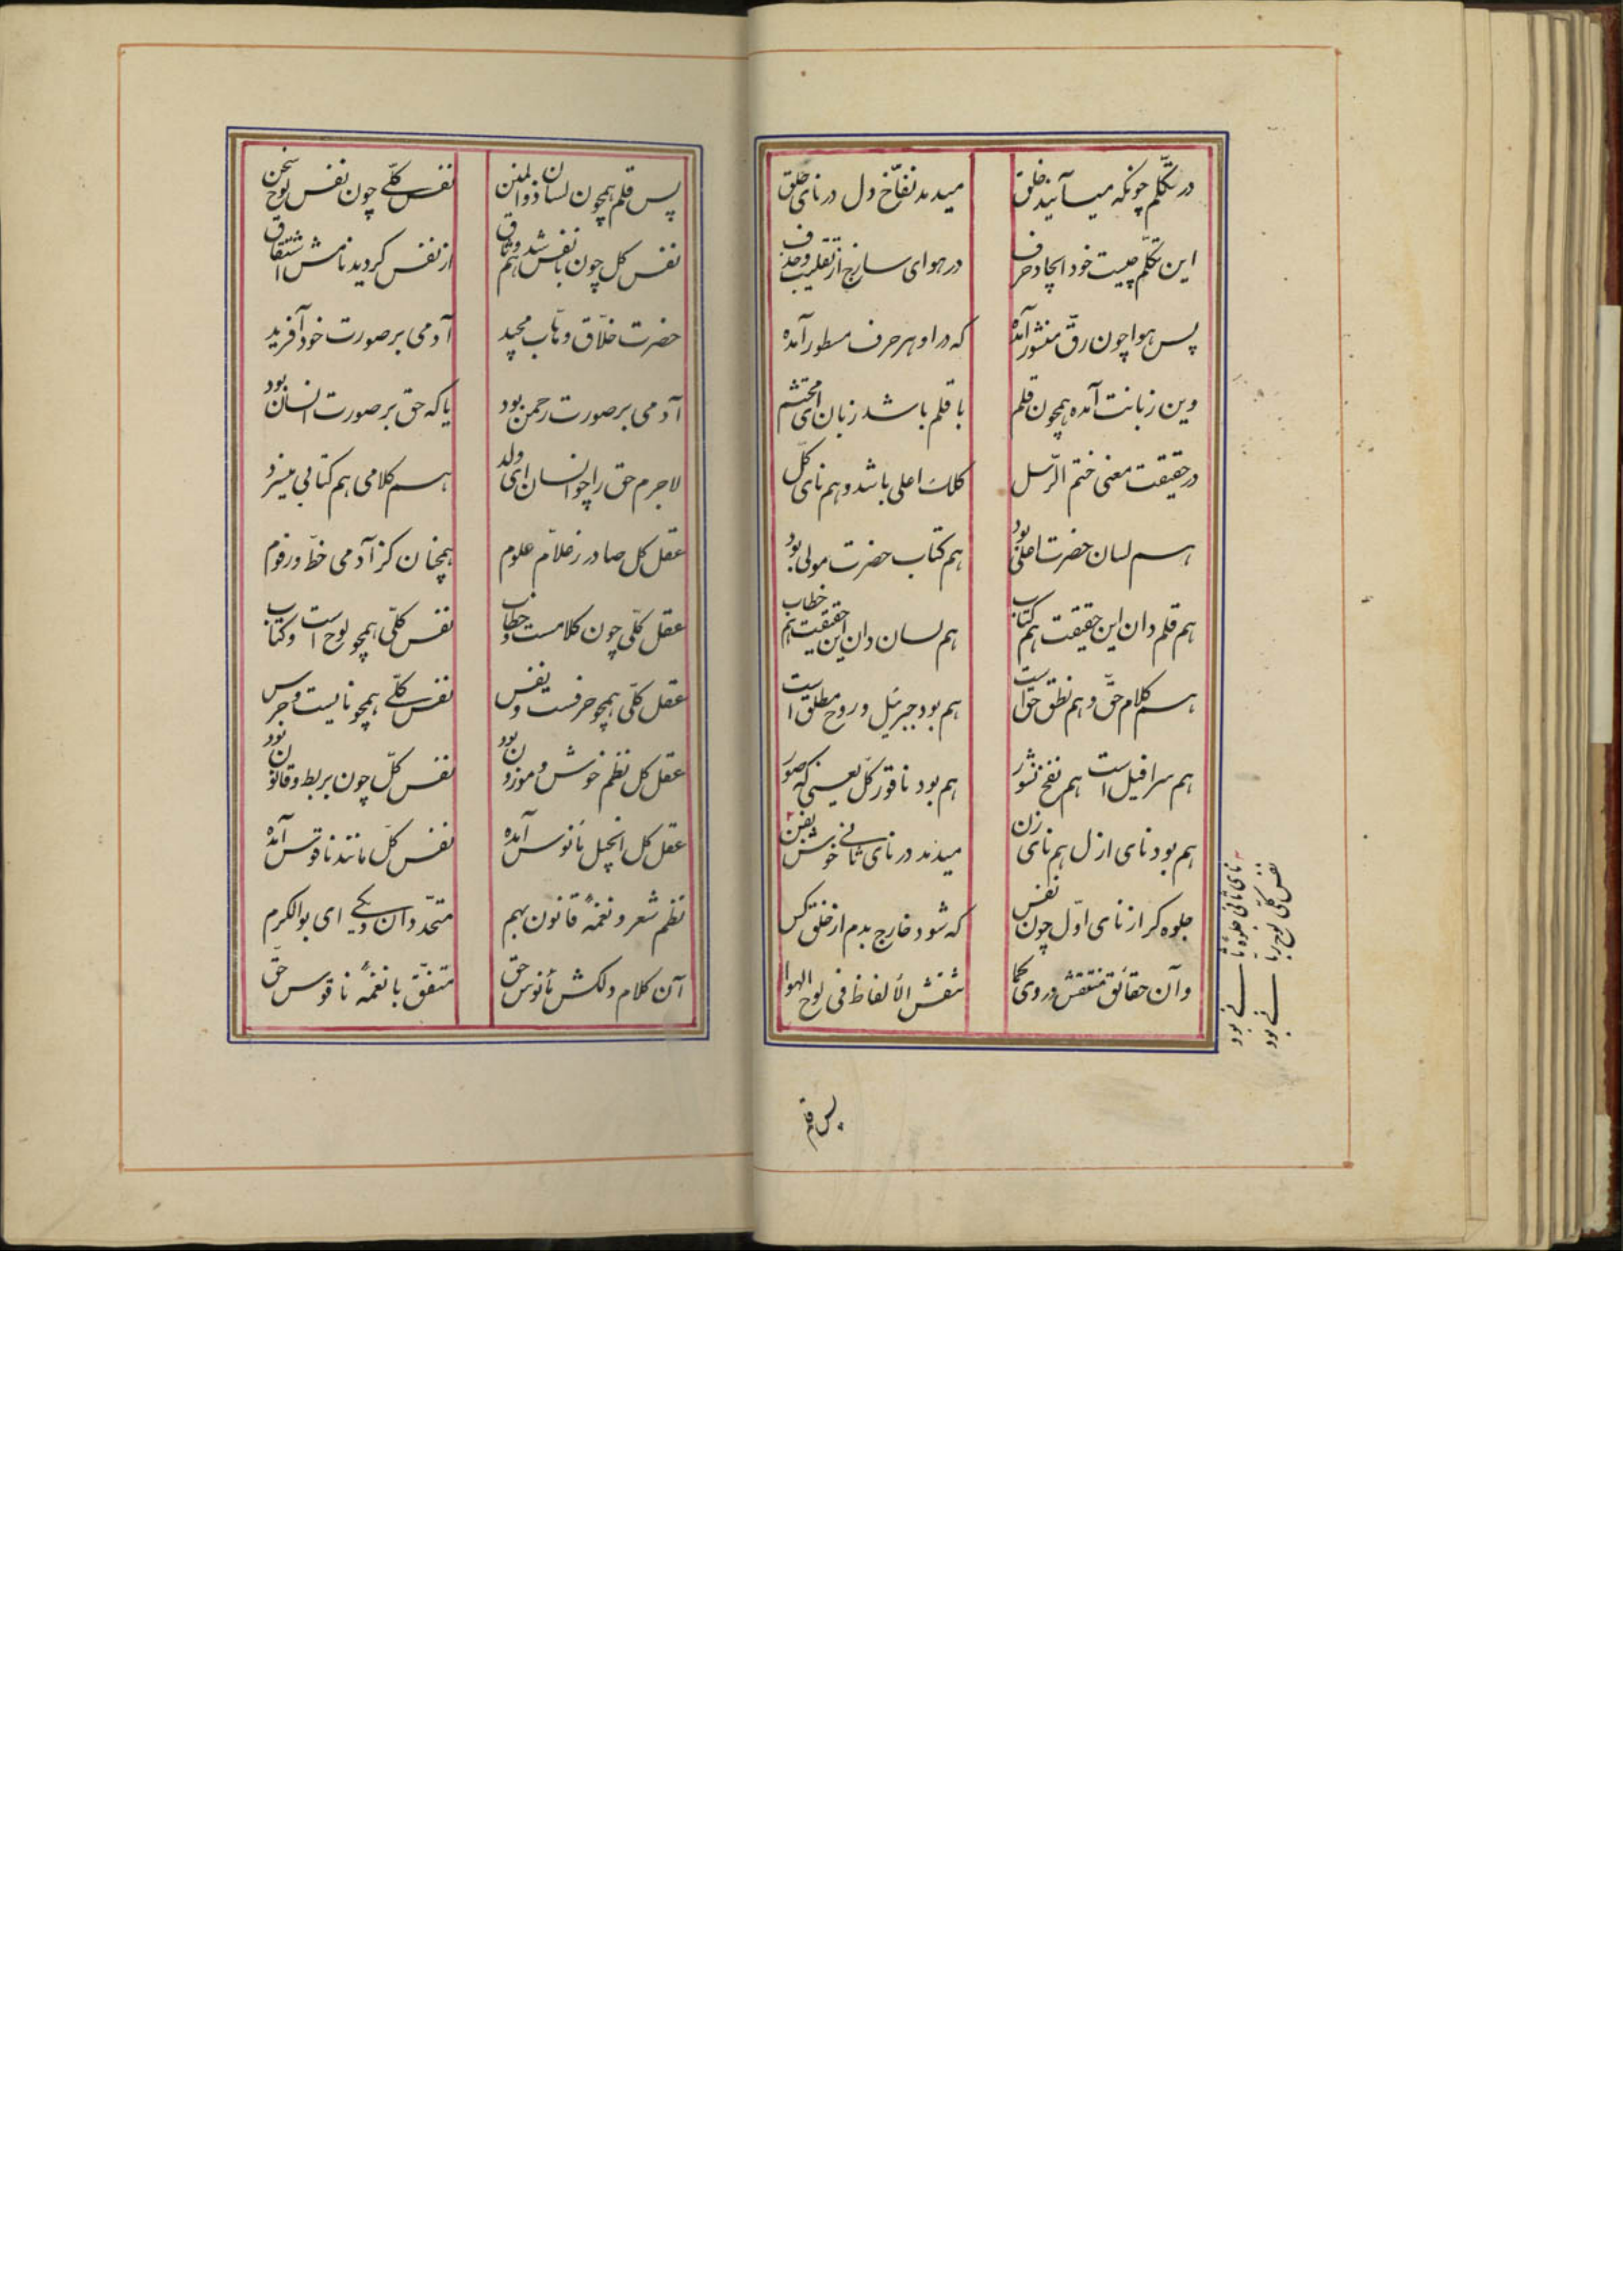 در تکلّم چونکه میآئید خلق میدمد نفّاخ دل در نای حلق
این تکلّم چیست خود ایجاد حرف در هوای سازج از تقلیب وحذف
پس هوا چون رقّ منشور آمده که در او هر حرف مسطور آمده
وین زبانت آمده همچون قلم با قلم باشد زبان ای محتشم
در حقیقت معنی ختم الرّسل کلک اعلی باشد و هم نای کلّ
هم لسان حضرت اعلی بود هم کتاب حضرت مولی بود
هم قلم دان این حقیقت هم کتاب هم لسان دان این حقیقت هم خطاب
هم کلام حقّ و هم نطق حق است هم بود جبرئیل و روح مطلق است
هم سرافیل است هم نفخ نشور هم بود ناقور کلّ یعنی که صور
هم بود نای ازل هم نای زن میدمد در نای ثانی خوش بفن
جلوه گر از نای اوّل چون نفس که شود خارج بدم از حلق کس
وآن حقائق منتقش در وی کما تنقش الألفاظ فی لوح الهوا
نای ثانی جلوه ثانی بود
نفس کلّی لوح ربانی بود
پس قلم
پس قلم همچون لسان ذوالمنن نفس کلّی چون نفس لوح سخن
نفس کل چون با نفس شد هم وثاق از نفس گردید نامش اشتقاق
حضرت خلّاق وهّاب مجید آدمی بر صورت خود آفرید
آدمی بر صورت رحمن بود یا که حق بر صورت انسان بود
لاجرم حق را چو انسان ای ولد هم کلامی هم کتابی میسزد
عقل کل صادر ز علّام علوم همچنان کز آدمی خطّ و رقوم
عقل کلّی چون کلامست و خطاب نفس کلّی همچو لوح است و کتاب
عقل کلّی همچو حرفست و نفس نفس کلّی همچو نایست و جرس
عقل کل نظم خوش و موزون بود نفس کلّ چون بربط و قانون بود
عقل کل انجیل مأنوس آمده نفس کلّ مانند ناقوس آمده
نظم شعر و نغمهٔ قانون بهم متحّد دان ای بوالکرم
آن کلام دلکش مأنوس حق متفّق با نغمهٔ ناقوس حقّ